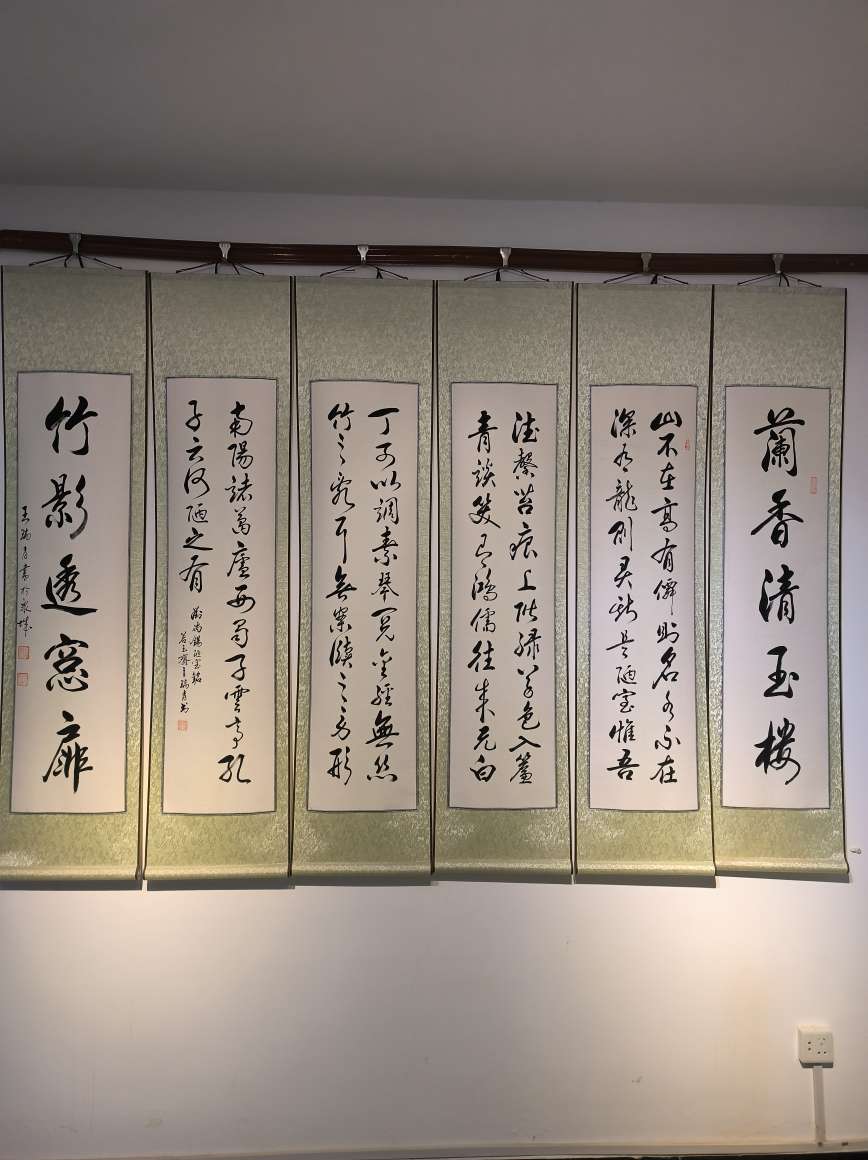 蘭香清玉楼
山不在高有僊則名水不在
深有龍則灵斯是陋室惟吾
德馨苔痕上階緑草色入簾
青談笑有鴻儒往来无白
丁可以調素琴閱金經無丝
竹之亂耳無案牘之劳形
南陽諸葛廬西蜀子雲亭孔
子云何陋之有
劉禹錫陋室銘
竹影透窓扉